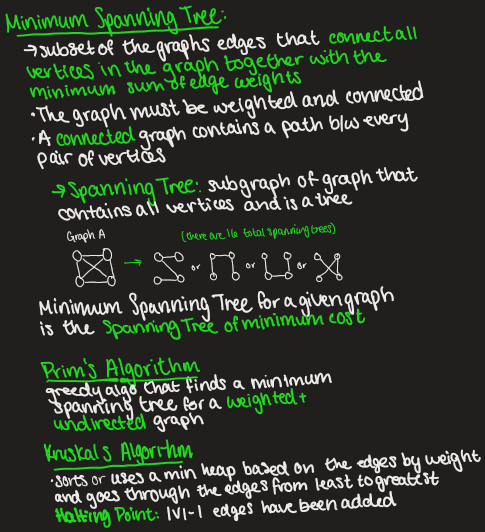 Minimum Spanning Tree:
→ subset of the graphs edges that connect all
vertices in the graph together with the
minimum sum of edge weights
• The graph must be weighted and connected
• A connected graph contains a path b/w every
pair of vertices
→ Spanning Tree: subgraph of graph that
contains all vertices and is a tree
Graph A (there are 16 total spanning trees)
→ or or or
Minimum Spanning Tree for a given graph
is the Spanning Tree of minimum cost
Prim's Algorithm
greedy algo that finds a minimum
spanning tree for a weighted +
undirected graph
Kruskal's Algorithm
• sorts or uses a min heap based on the edges by weight
and goes through the edges from least to greatest
Halting Point: |V|-1 edges have been added